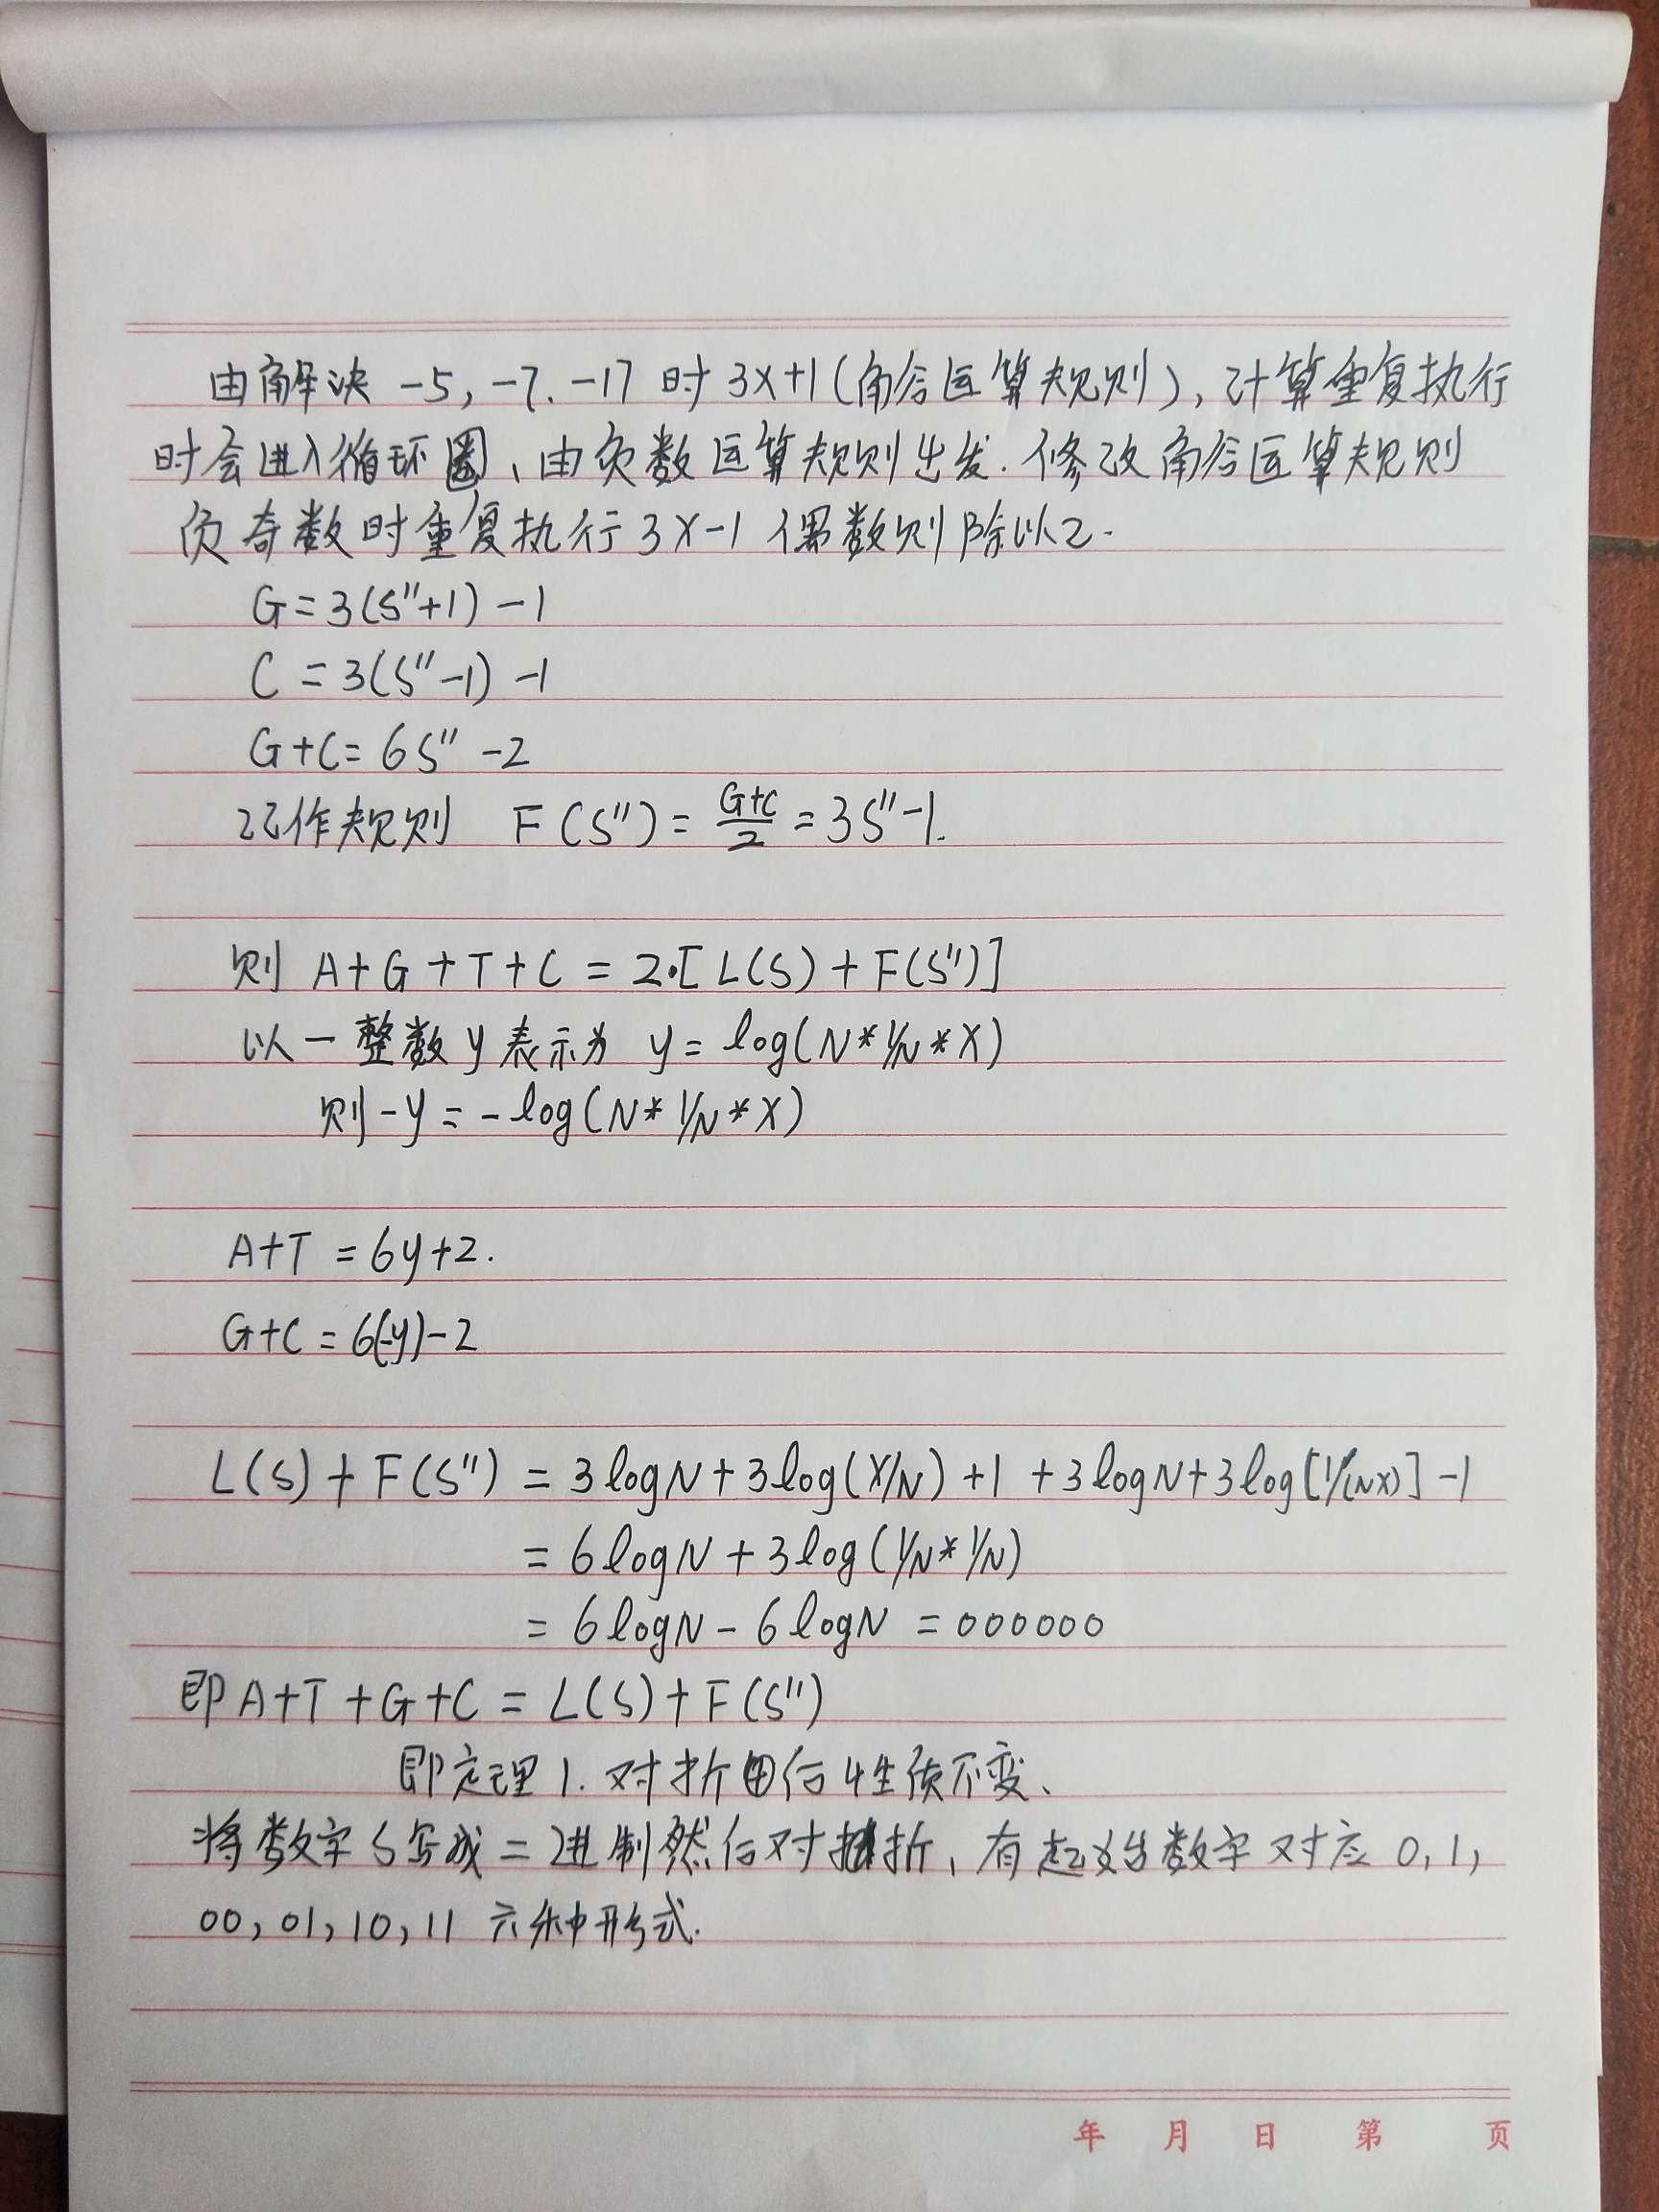 由解决 -5, -7. -17 时 3x+1(角谷运算规则), 计算重复执行
时会进入循环圈、由负数运算规则出发. 修改角谷运算规则
负奇数时重复执行 3x-1 偶数则除以2.
G=3(S''+1)-1
C=3(S''-1)-1
G+C=6S''-2
记作规则 F(S'')=(G+C)/2=3S''-1.
则 A+G+T+C=2·[L(S)+F(S'')]
以一整数y表示为 y=log(N*1/N*X)
则-y=-log(N*1/N*X)
A+T=6y+2.
G+C=6(-y)-2
L(S)+F(S'')=3logN+3log(X/N)+1+3logN+3log[1/(NX)]-1
=6logN+3log(1/N*1/N)
=6logN-6logN=000000
即A+T+G+C=L(S)+F(S'')
即定理1. 对折后性质不变、
将数字S写成二进制然后对折, 有起始数字对应 0, 1,
00, 01, 10, 11 六种形式.
年 月 日 第 页